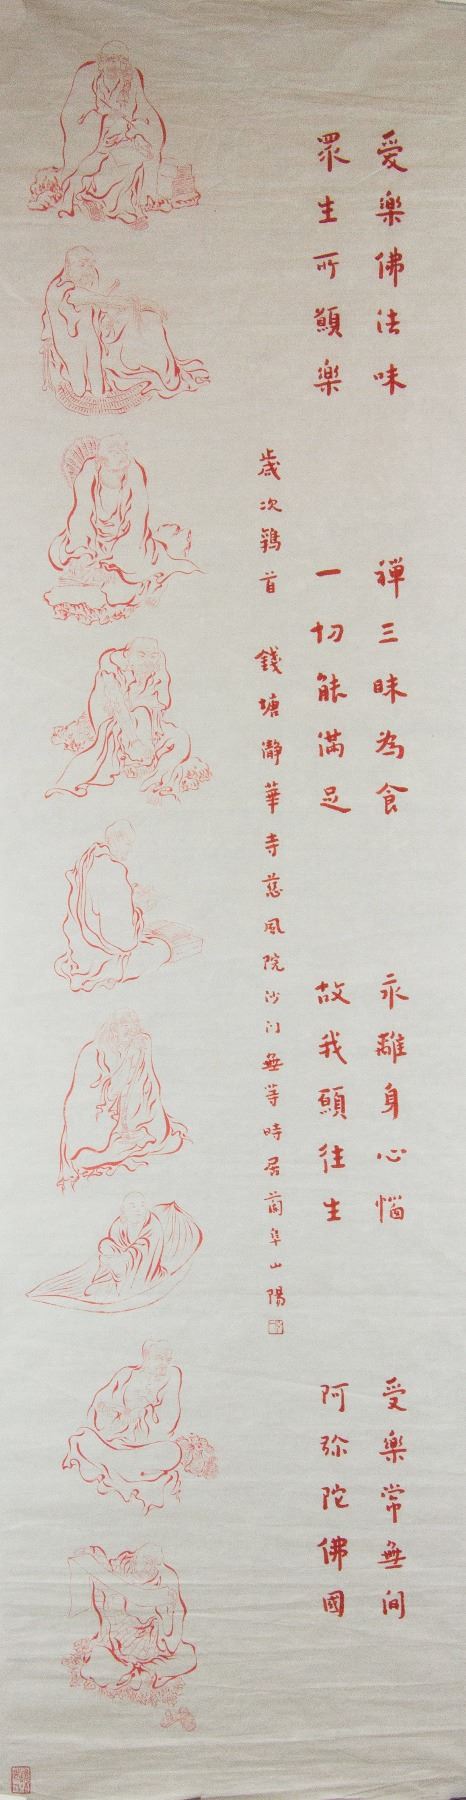 愛樂佛法味 禅三昧為食 永離身心惱 受樂常無间
眾生所願樂 一切能滿足 故我願往生 阿弥陀佛國
歲次鶉首 錢塘瀞華寺慈風院沙门無等時居蘭阜山陽